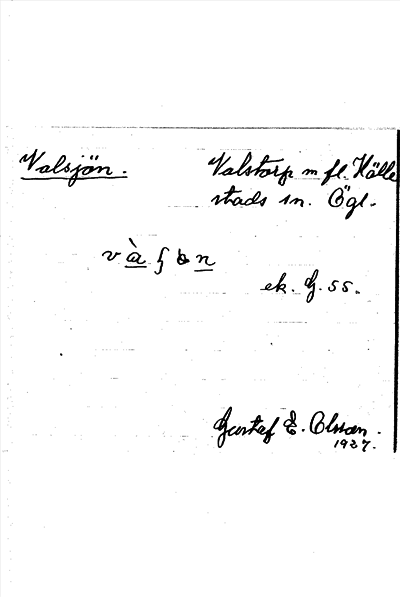 Valsjön.
Valstorp m fl. Hälle
stads sn. Ögl.
ek. G. ss.
Gustaf E. Olsson.
1927.